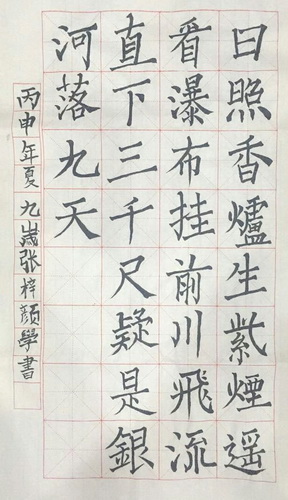 日照香爐生紫煙遥
看瀑布挂前川飛流
直下三千尺疑是銀
河落九天
丙申年夏九歲张梓颜學書